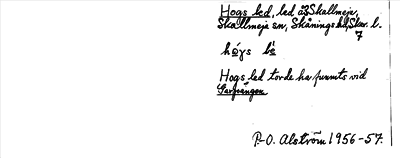 Hogs led, led å Skallmeja,
Skallmeja sn, Skånings hd, Skar. l.
7
hógs lè
Hogs led torde ha funnits vid
P.-O. Alström 1956-57.